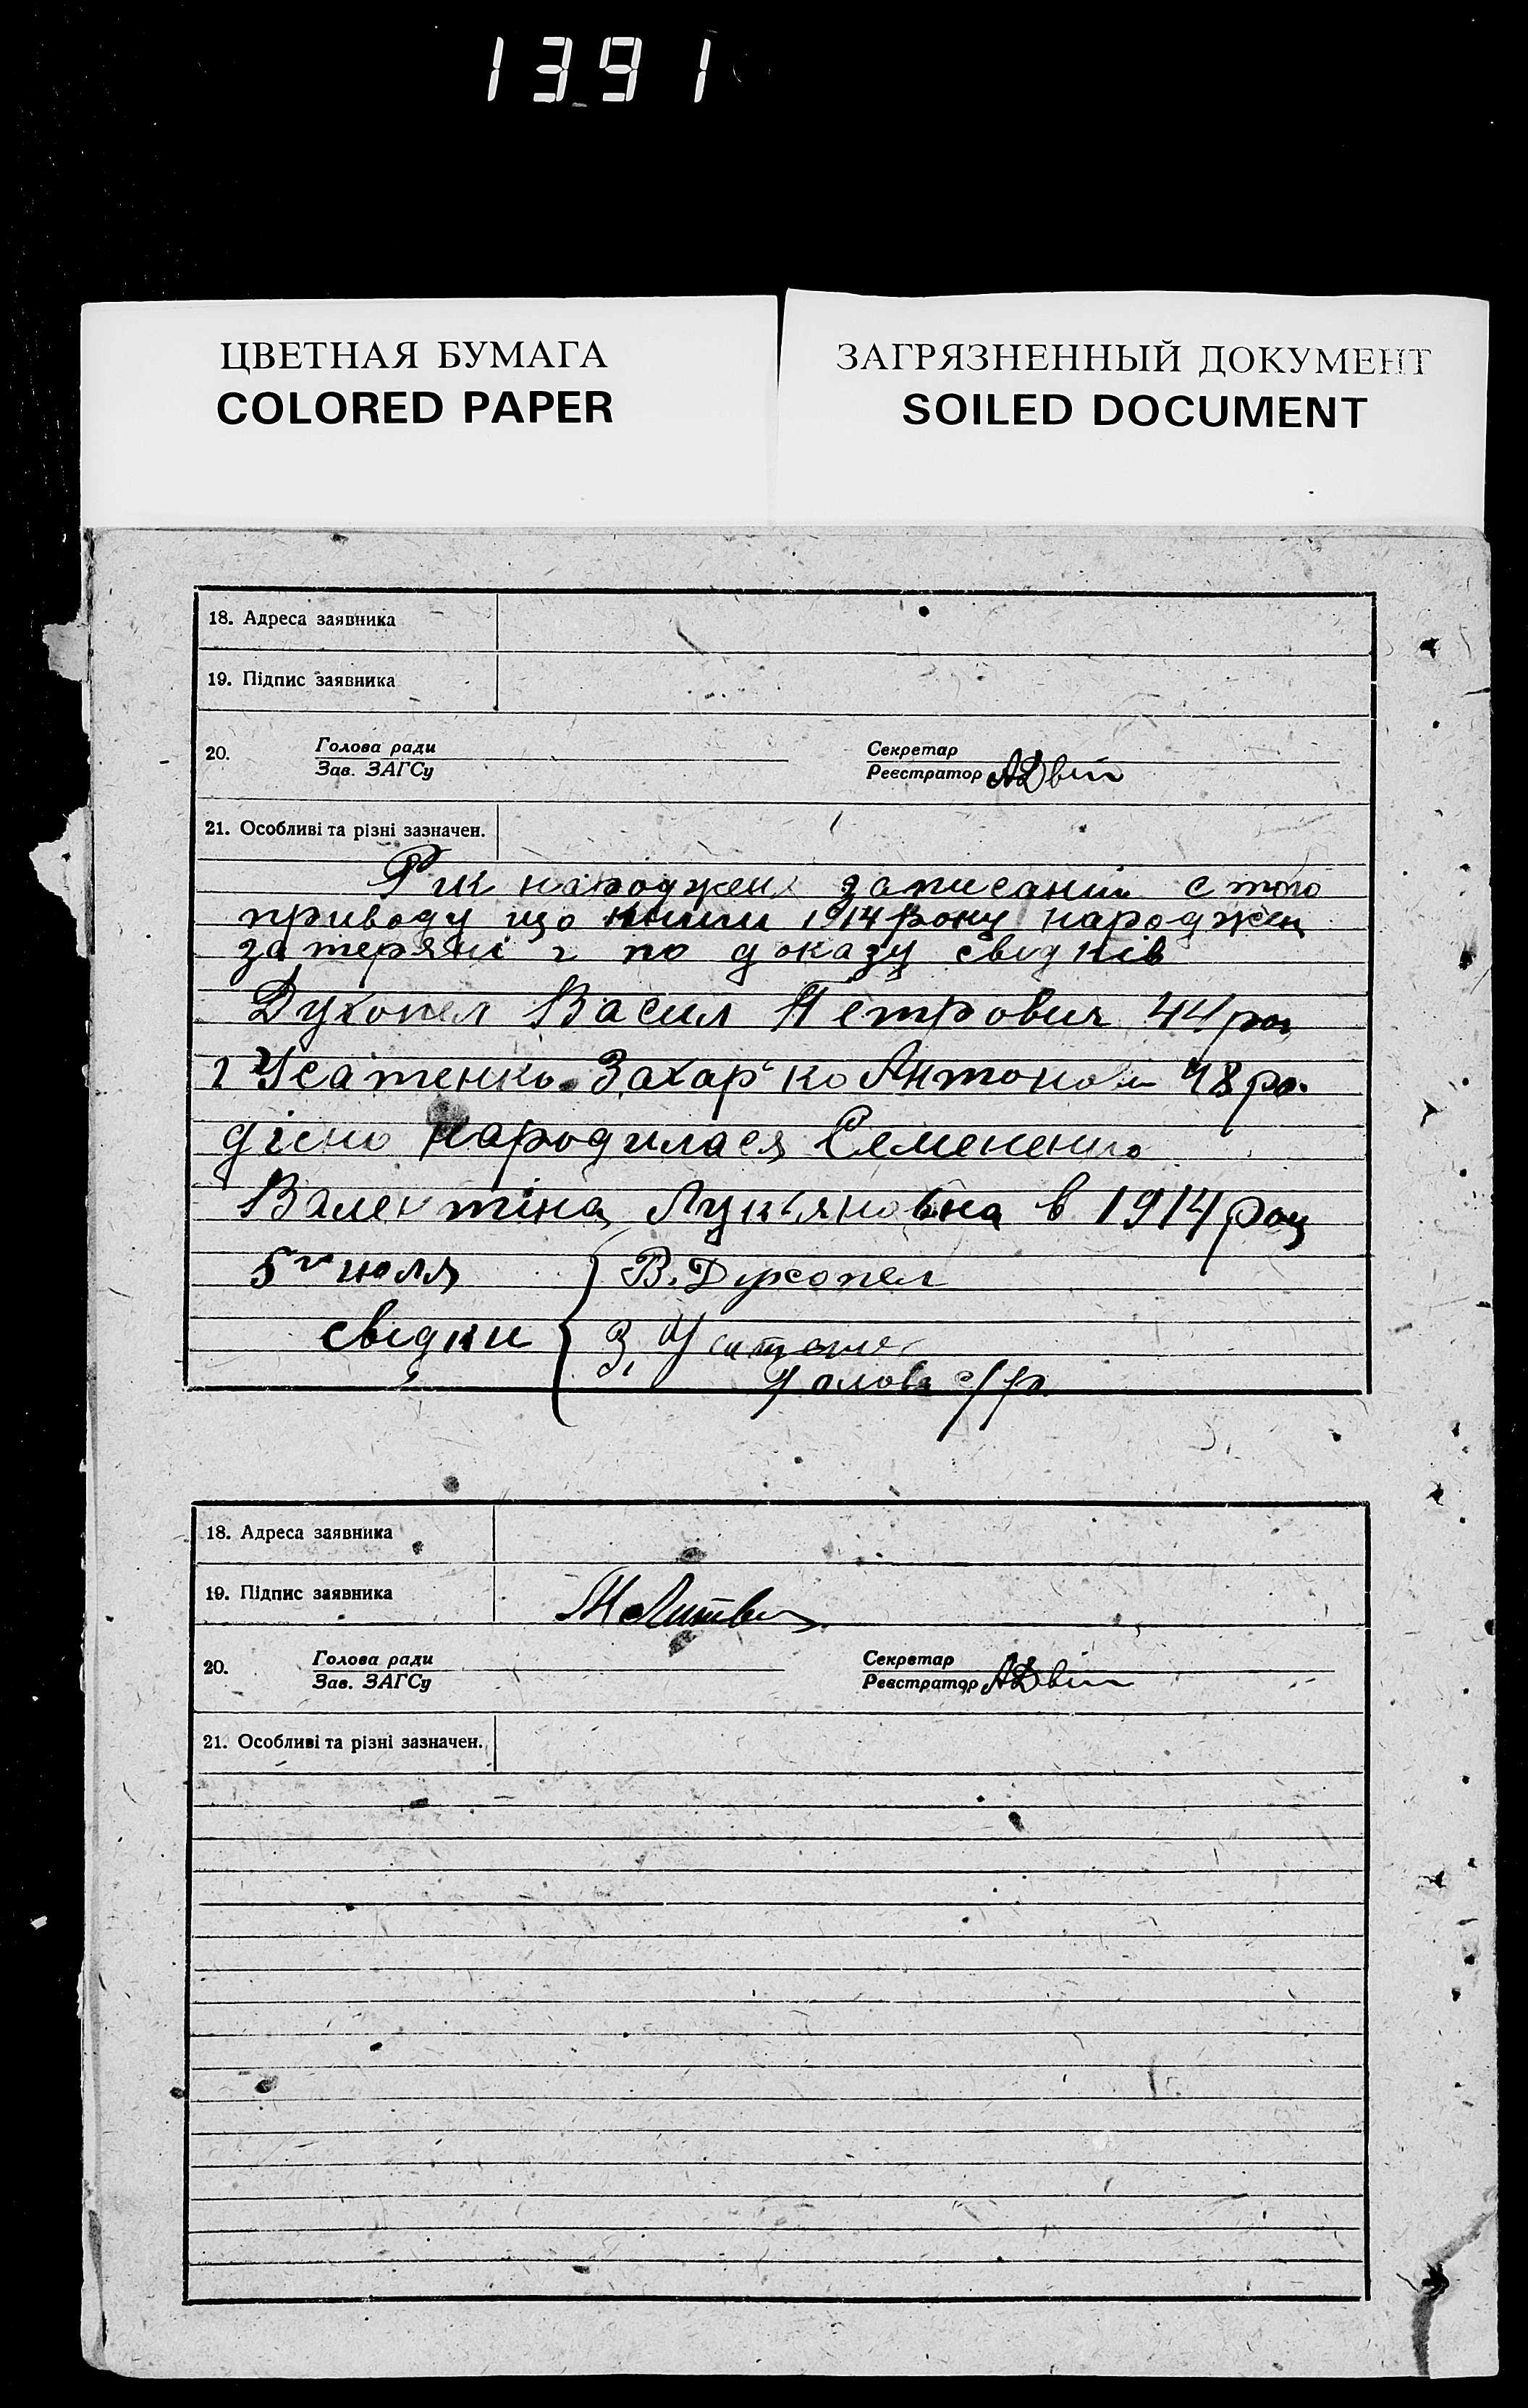 1391
ЦВЕТНАЯ БУМАГА
COLORED PAPER
ЗАГРЯЗНЕННЫЙ ДОКУМЕНТ
SOILED DOCUMENT
18. Адреса заявника
19. Підпис заявника
20. Голова ради
Зав. ЗАГСу
Секретар
Реєстратор
21. Особливі та різні зазначен.
Рік народжен записаний с того
приводу що книги 1914 року народжен
затеряні і по доказу свідків
Духопел Васил Петрович 44 рок
і Усатенко Захарко Антонов 48 ро.
дісно народилася Семененко
Валентіна Лукяновна в 1914 році
5 г июля
В. Духопел
свідки
З. Усатенко
Голова с/р.
18. Адреса заявника
19. Підпис заявника
МЛитвин
20. Голова ради
Зав. ЗАГСу
Секретар
Реєстратор
21. Особливі та різні зазначен.